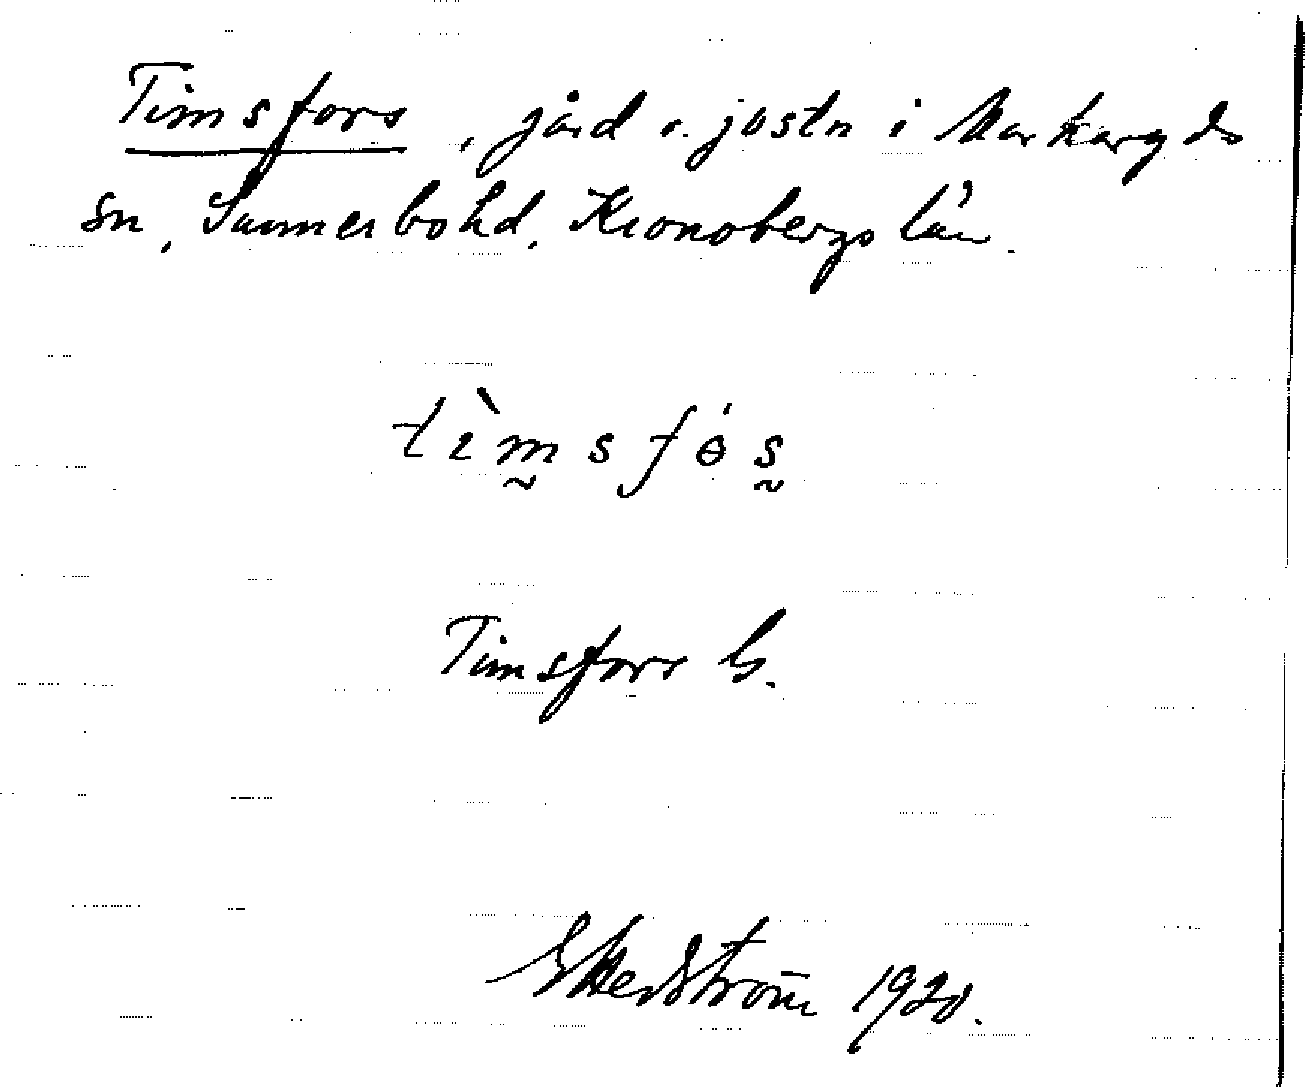 Timsfors, gård o. jästn i Markaryds
sn, Sunnerbo hd, Kronobergs län.
tìmsfɵ́s
Timsfors G.
G Hedström 1920.